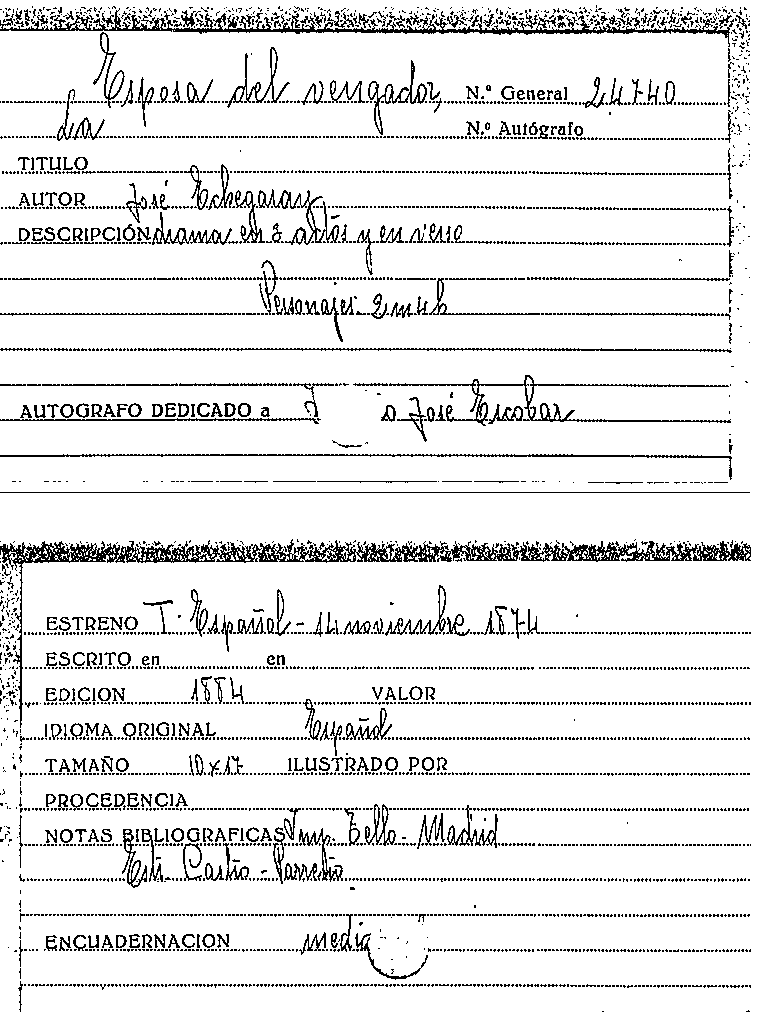 Esposa del vengador, N.º General 24740
La N.º Autógrafo
TITULO
AUTOR José Echegaray
DESCRIPCIÓN drama en 3 actos y en verso
Personajes. 2m4h
AUTOGRAFO DEDICADO a José Escobar
ESTRENO T. Español - 14 noviembre 1874
ESCRITO en en
EDICION 1884 VALOR
IDIOMA ORIGINAL Español
TAMAÑO 10x17 ILUSTRADO POR
PROCEDENCIA
NOTAS BIBLIOGRAFICAS Imp. Tello - Madrid
Estr. Castro - Parreño
ENCUADERNACION media